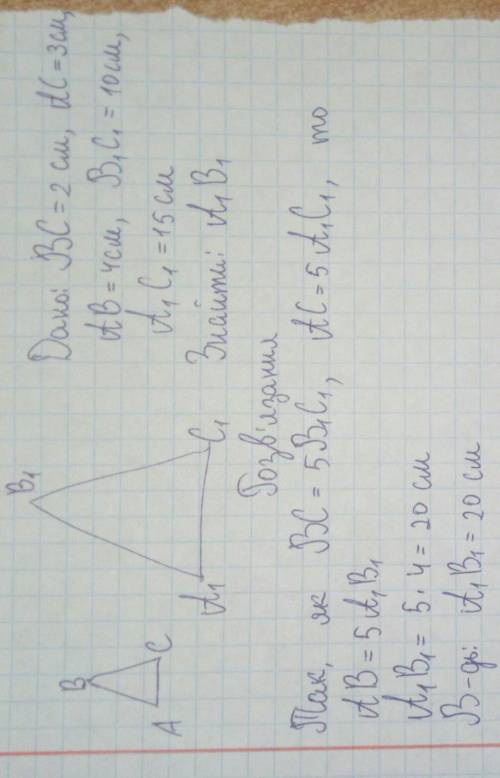 Дано: BC = 2 см, AC = 3 см,
AB = 4 см, B₁C₁ = 10 см,
A₁C₁ = 15 см
Знайти: A₁B₁
B
A
C
B₁
A₁
C₁
Розв'язання
Так, як BC = 5B₁C₁, AC = 5A₁C₁, то
AB = 5A₁B₁
A₁B₁ = 5 · 4 = 20 см
В-дь: A₁B₁ = 20 см